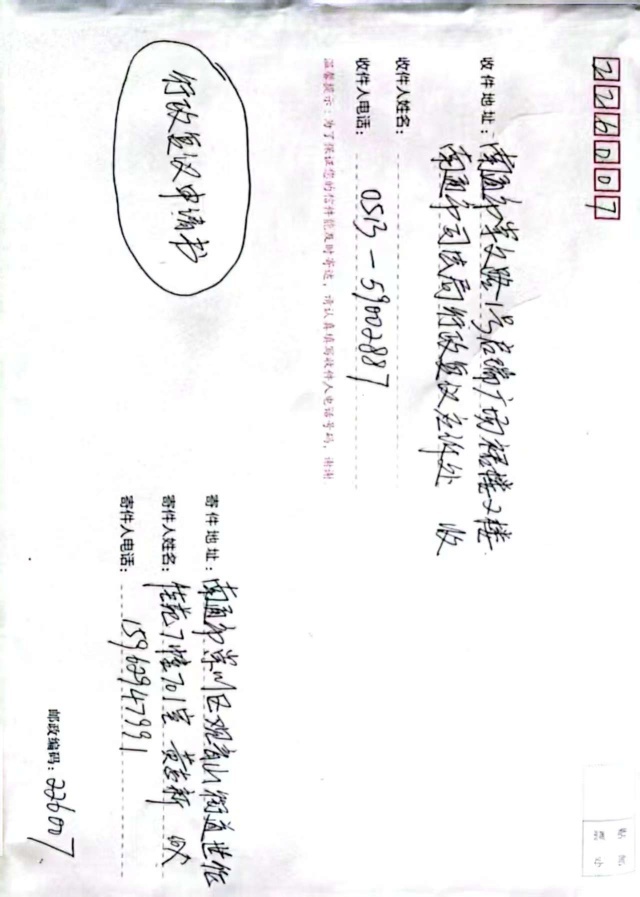 226007
收件地址：南通市崇文路1号启瑞广场裙楼2楼
南通市司法局行政复议应诉处 收
收件人姓名：
收件人电话：0513-59002887
温馨提示：为了保证您的信件能及时寄达，请认真填写收件人电话号码，谢谢
行政复议申请书
寄件地址：南通市崇川区观音山街道世伦
佳苑7幢701室 黄志新
寄件人姓名：
寄件人电话：15962947991
邮政编码：226007